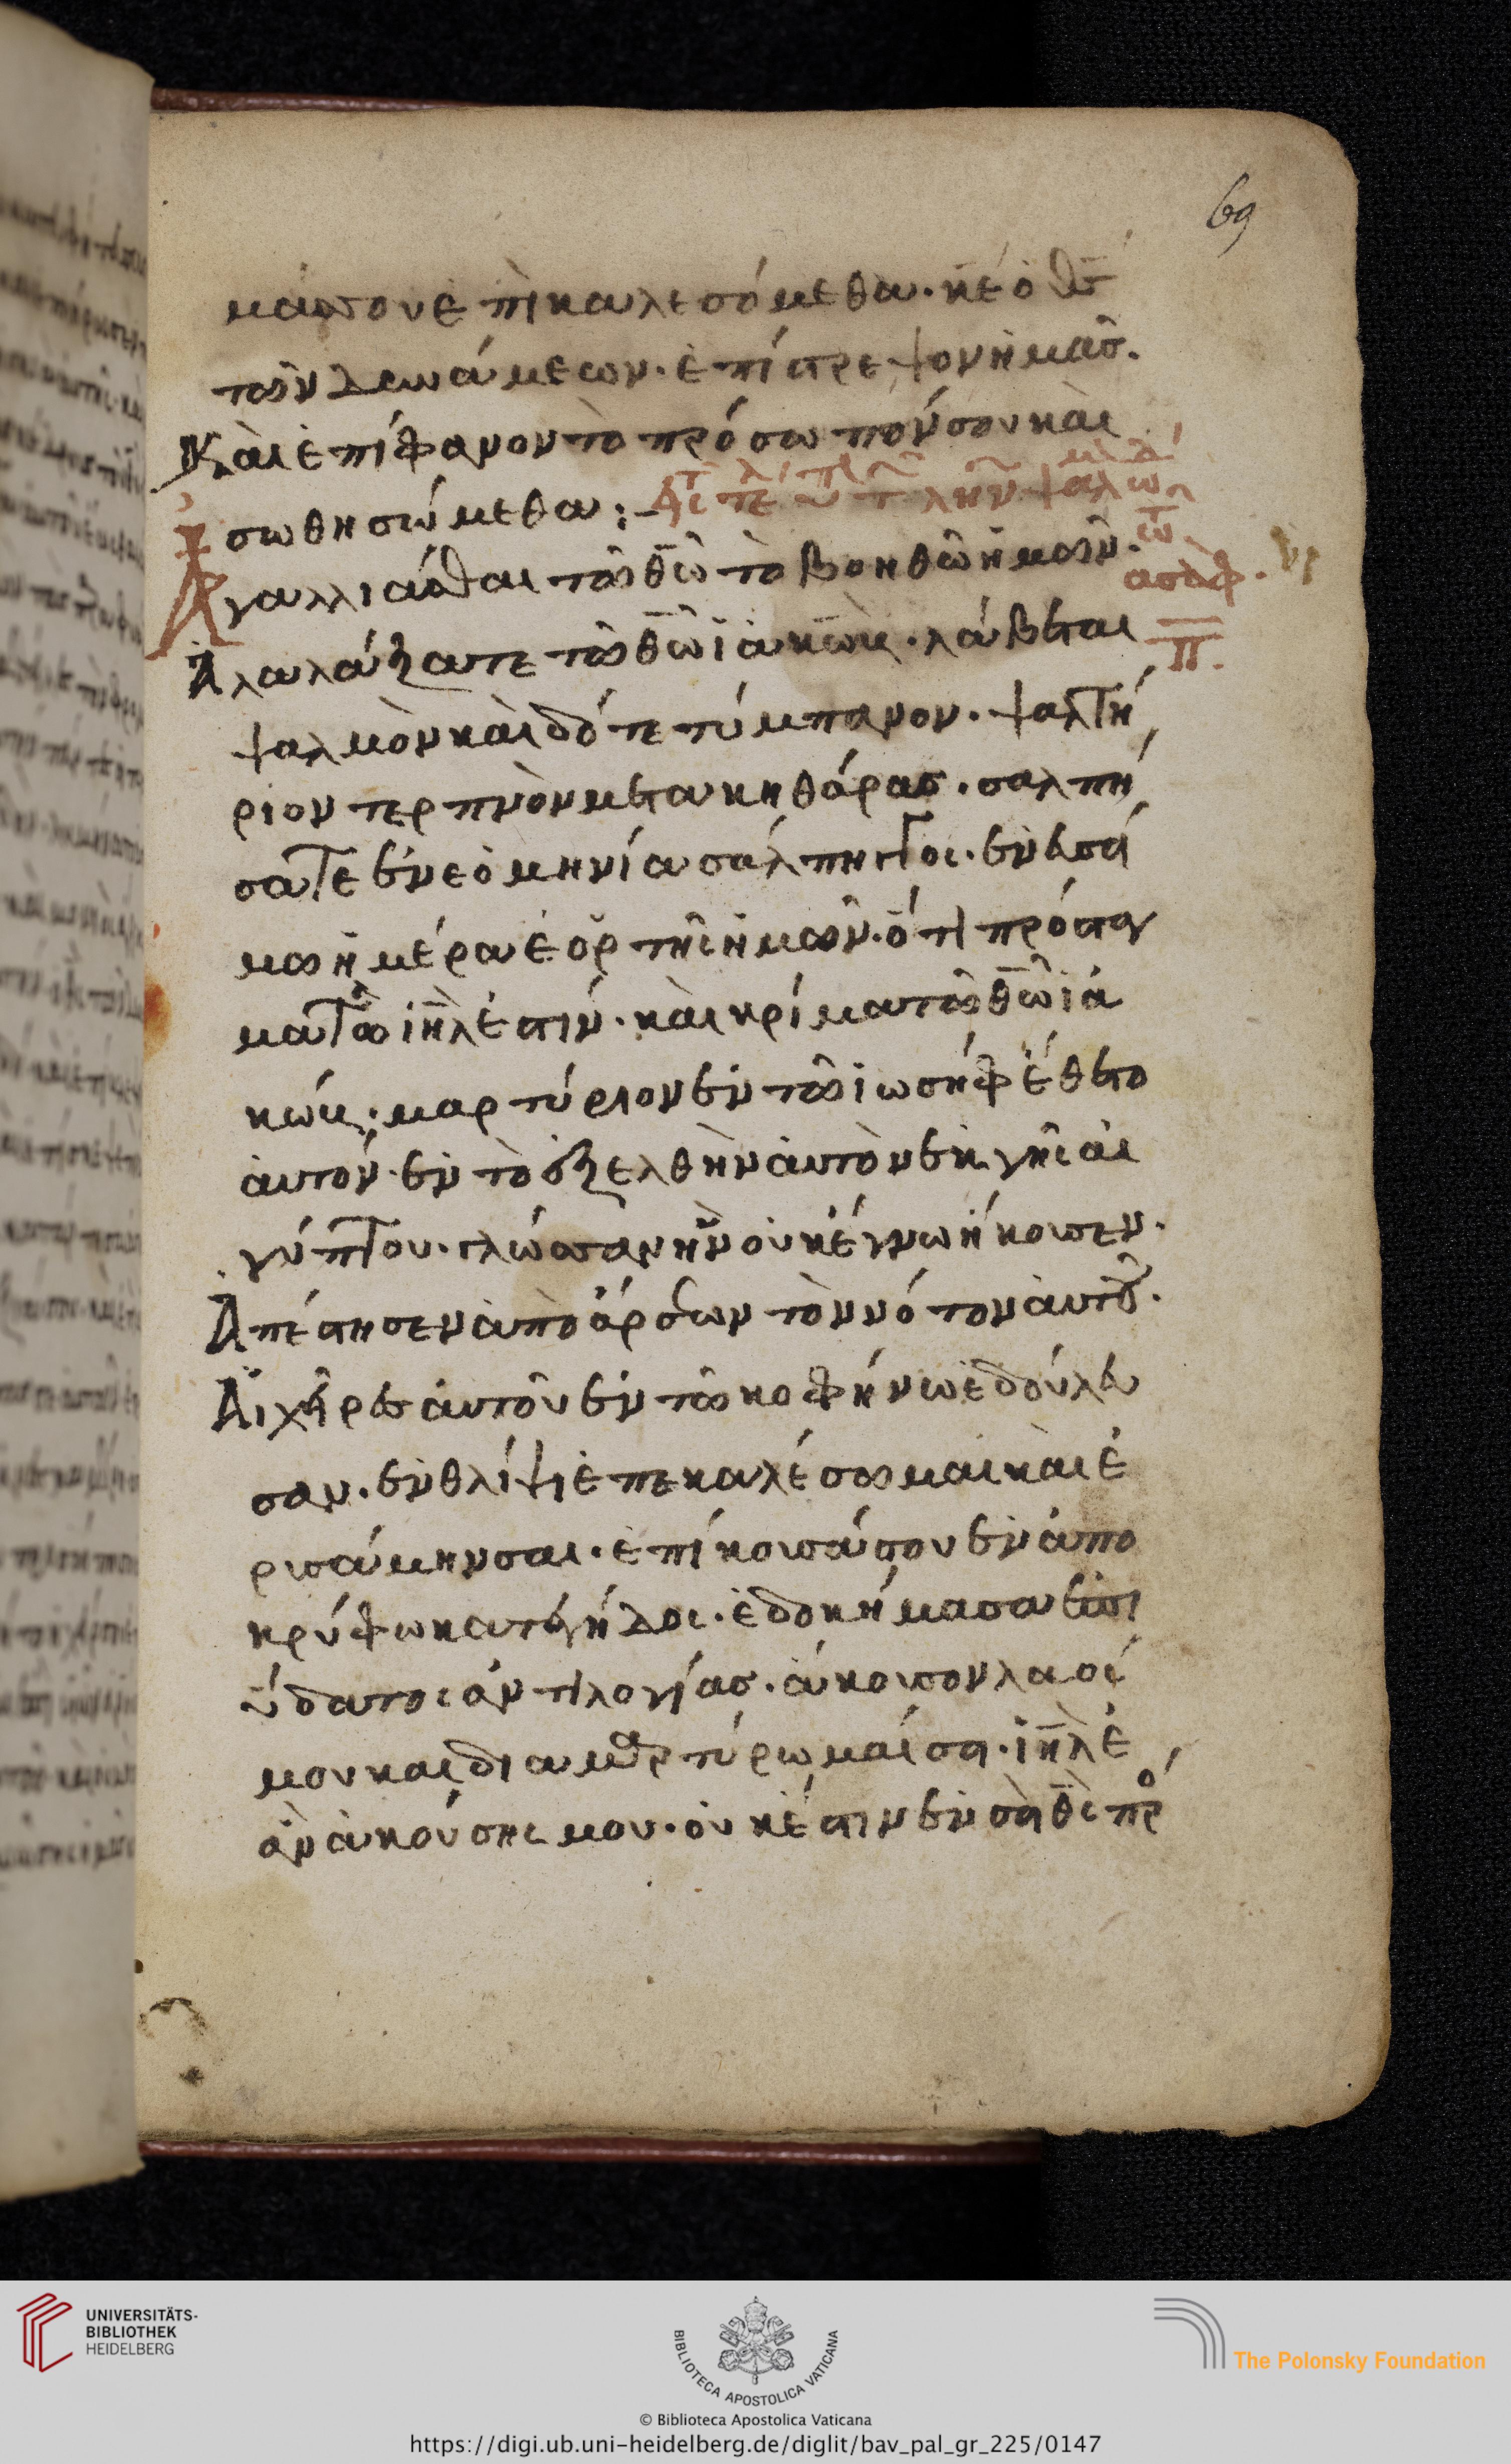 69
μάσου ἐπικαλεσόμεθα· κ̅ε̅ ὁ θ̅ς̅
τῶν δυνάμεων· ἐπίστρεψον ἡμᾶς.
Καὶ ἐπίφανον τὸ πρόσωπόν σου καὶ
σωθησώμεθα:–
ασὰφ.
π̅.
Ἀγαλλιάσθαι τῶ θ̅ῶ̅ τὸ βοηθῶ ἡμῶν·
Ἀλαλάξατε τῶ θ̅ῶ̅ ϊακώμ. λάβεται
ψαλμὸν καὶ δότε τύμπανον. ψαλτή
ριον τερπνὸν μετα κηθάρας. σαλπή
σατε ἐν νεομηνία σάλπηγγοι. ἐν εὐσή
μω ἡμέρα ἑορτῆς ἡμῶν. ὅτι πρόσταγ
μα τῶ ἰη̅λ̅ ἐστίν. καὶ κρίμα τῶ θ̅ῶ̅ ϊα
κώμ. μαρτύριον ἐν τῶ ἰωσὴφ ἔθετο
ἀυτόν. ἐν τὸ ἐξελθῆν ἀυτὸν ἐκ γῆς ἀι
γύπτου. γλώσσαν ἣν οὐκ ἔγνω ἤκουσεν.
Ἀπέστησεν ἀπὸ ἄρσεων τὸν νότον ἀυτοῦ.
Ἀι χῆρες ἀυτοῦ ἐν τῶ κοφήνω ἐδούλευ
σαν. ἐν θλίψι ἐπεκαλέσωμαι καὶ ἐ
ρισάμην σαι. ἐπίκουσά σου ἐν ἀπο
κρύφω καταιγήδοι. ἐδοκήμασα σε ἐπι
ὕδατος ἀντιλογίας. ἄκουσον λαός
μου και διαμαρτύρωμαί σοι. ἰη̅λ̅ ἐ
ὰν ἀκούσης μου. οὐκ ἔστιν ἐν σὺ θ̅ς̅ πρό
UNIVERSITÄTS-
BIBLIOTHEK
HEIDELBERG
BIBLIOTECA APOSTOLICA VATICANA
The Polonsky Foundation
© Biblioteca Apostolica Vaticana
https://digi.ub.uni-heidelberg.de/diglit/bav_pal_gr_225/0147